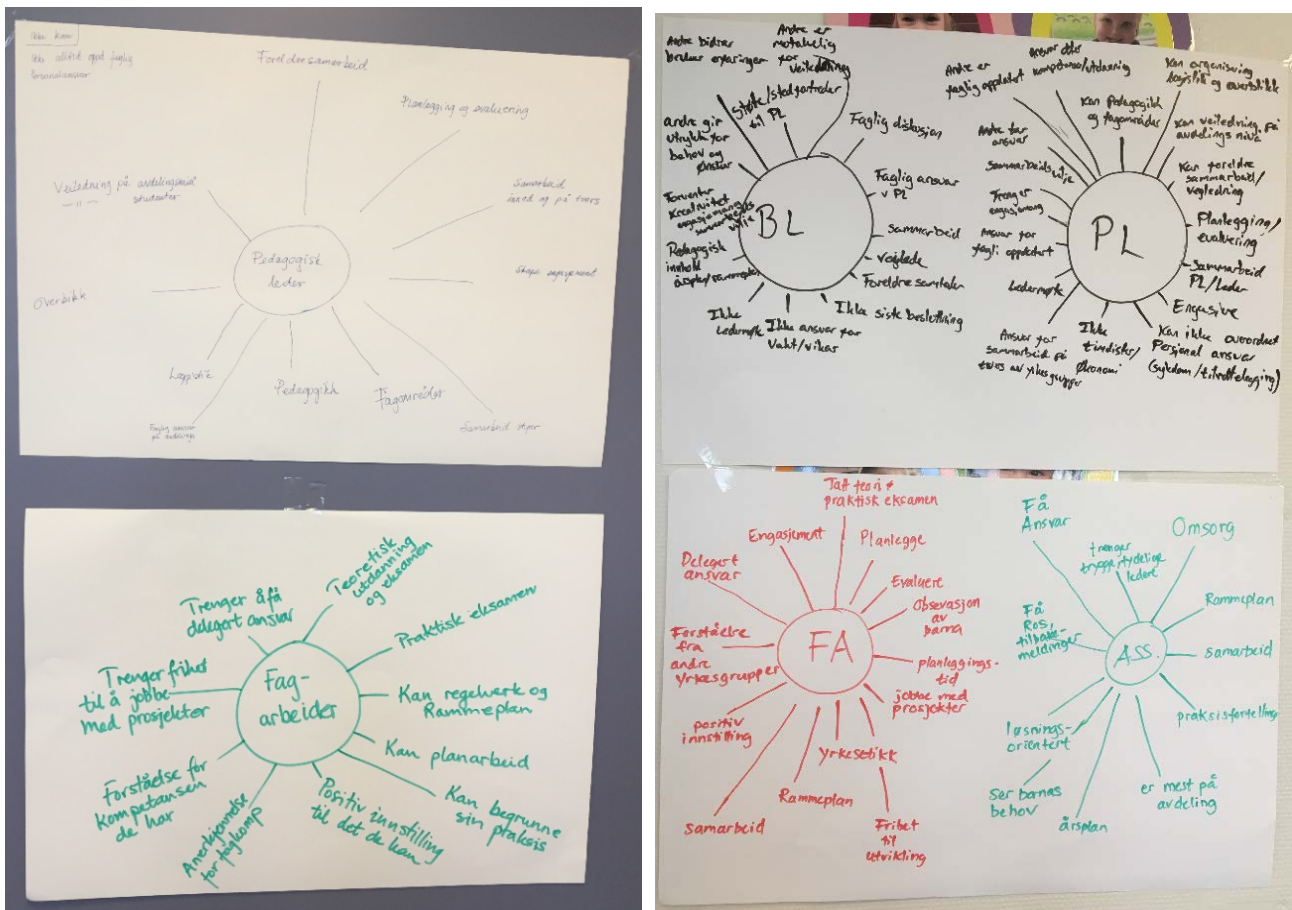 Ikke kan
Foreldresamarbeid
Planlegging og evaluering
Samarbeid
og på tvers
Skape engasjement
Samarbeid
Fagområder
Pedagogikk
Logistikk
Overblikk
Veiledning på avdelingsnivå
studenter
Pedagogisk
leder
Teoretisk
utdanning
og eksamen
Praktisk eksamen
Kan regelverk og
Rammeplan
Kan planarbeid
Kan begrunne
sin praksis
Positiv innstilling
til det de kan
Anerkjennelse
for fagkomp
Forståelse for
kompetansen
de har
Trenger frihet
til å jobbe
med prosjekter
Trenger å få
delegert ansvar
Fag-
arbeider
Andre bidrar
bruker erfaringer
Andre er
motakelig
for
Veiledning
Støtte/stedfortreder
til PL
Faglig diskusjon
Faglig ansvar
v PL
Sammarbeid
Veglede
Foreldre samtaler
Ikke siste beslutning
Ikke ansvar for
Vakt/vikar
Ikke
Ledermøte
Pedagogisk
innhold
årsplan/rammeplan
Forventer
Kreativitet
engasjemang
sammarbeids
vilje
andre gir
utrykk for
behov og
Ønsker
BL
Andre er
faglig oppdatert
Ansvar etter
kompetanse/utdanning
Kan Pedagogikk
og fagområder
Kan organisering
logistikk og overblikk
Kan veiledning på
avdelings nivå
Kan foreldre
sammarbeid/
vegledning
Planlegging/
evaluering
Sammarbeid
PL/Leder
Engasjere
Kan ikke overordnet
Personal ansvar
(sykdom/tilrettelegging)
Ikke
timelister/
Økonomi
Ansvar for
sammarbeid på
tvers av yrkesgrupper
Ledermøte
Ansvar for
fagli oppdatert
Trenger
engasjemang
Sammarbeidsvilje
Andre tar
ansvar
PL
Tatt teori +
praktisk eksamen
Planlegge
Evaluere
Obsevasjon
av
barna
planleggings-
tid
jobbe med
prosjekter
Yrkesetikk
Frihet
til
utvikling
Rammeplan
Samarbeid
positiv
innstilling
Forståelse
fra
andre
Yrkesgrupper
Delegert
ansvar
Engasjement
FA
Få
Ansvar
trenger
trygge+tydelige
ledere
Omsorg
Rammeplan
samarbeid
praksisfortelling
er mest på
avdeling
årsplan
Ser barnas
behov
løsnings-
orientert
Få
Ros,
tilbake-
meldinger
ASS.